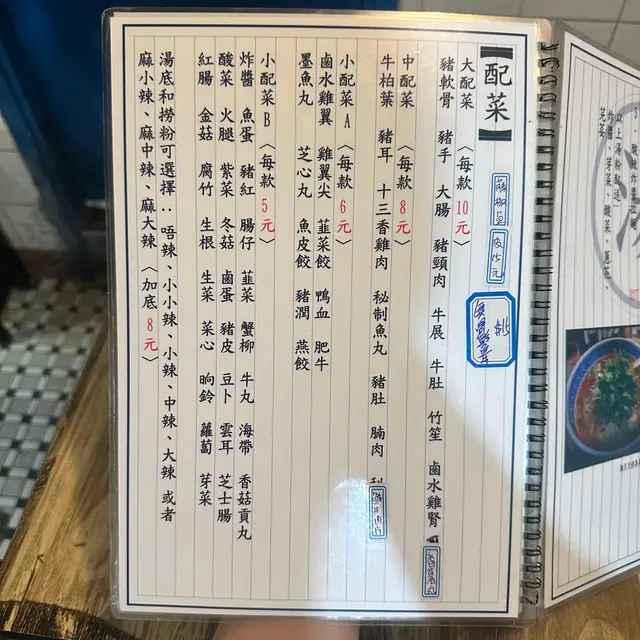 【配菜】
大配菜〈每款10元〉
豬軟骨 豬手 大腸 豬頸肉 牛展 牛肚 竹笙 鹵水雞腎
中配菜〈每款8元〉
牛柏葉 豬耳 十三香雞肉 秘制魚丸 豬肚 腩肉
小配菜A〈每款6元〉
鹵水雞翼 雞翼尖 韮菜餃 鴨血 肥牛
墨魚丸 芝心丸 魚皮餃 豬潤 燕餃
小配菜B〈每款5元〉
炸醬 魚蛋 豬紅 腸仔 韮菜 蟹柳 牛丸 海帶 香菇貢丸
酸菜 火腿 紫菜 冬菇 鹵蛋 豬皮 豆卜 雲耳 芝士腸
紅腸 金菇 腐竹 生根 生菜 菜心 晌鈴 蘿蔔 芽菜
湯底和撈粉可選擇：唔辣、小小辣、小辣、中辣、大辣 或者
麻小辣、麻中辣、麻大辣〈加底8元〉
$15